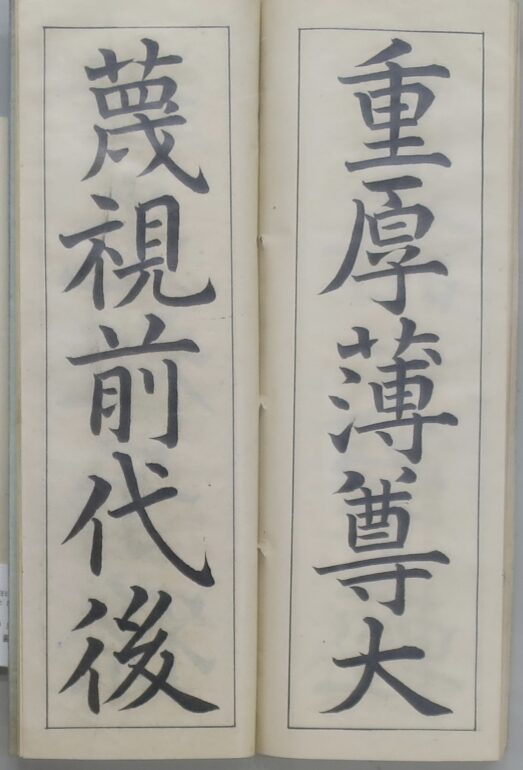 重厚薄尊大
蔑視前代後